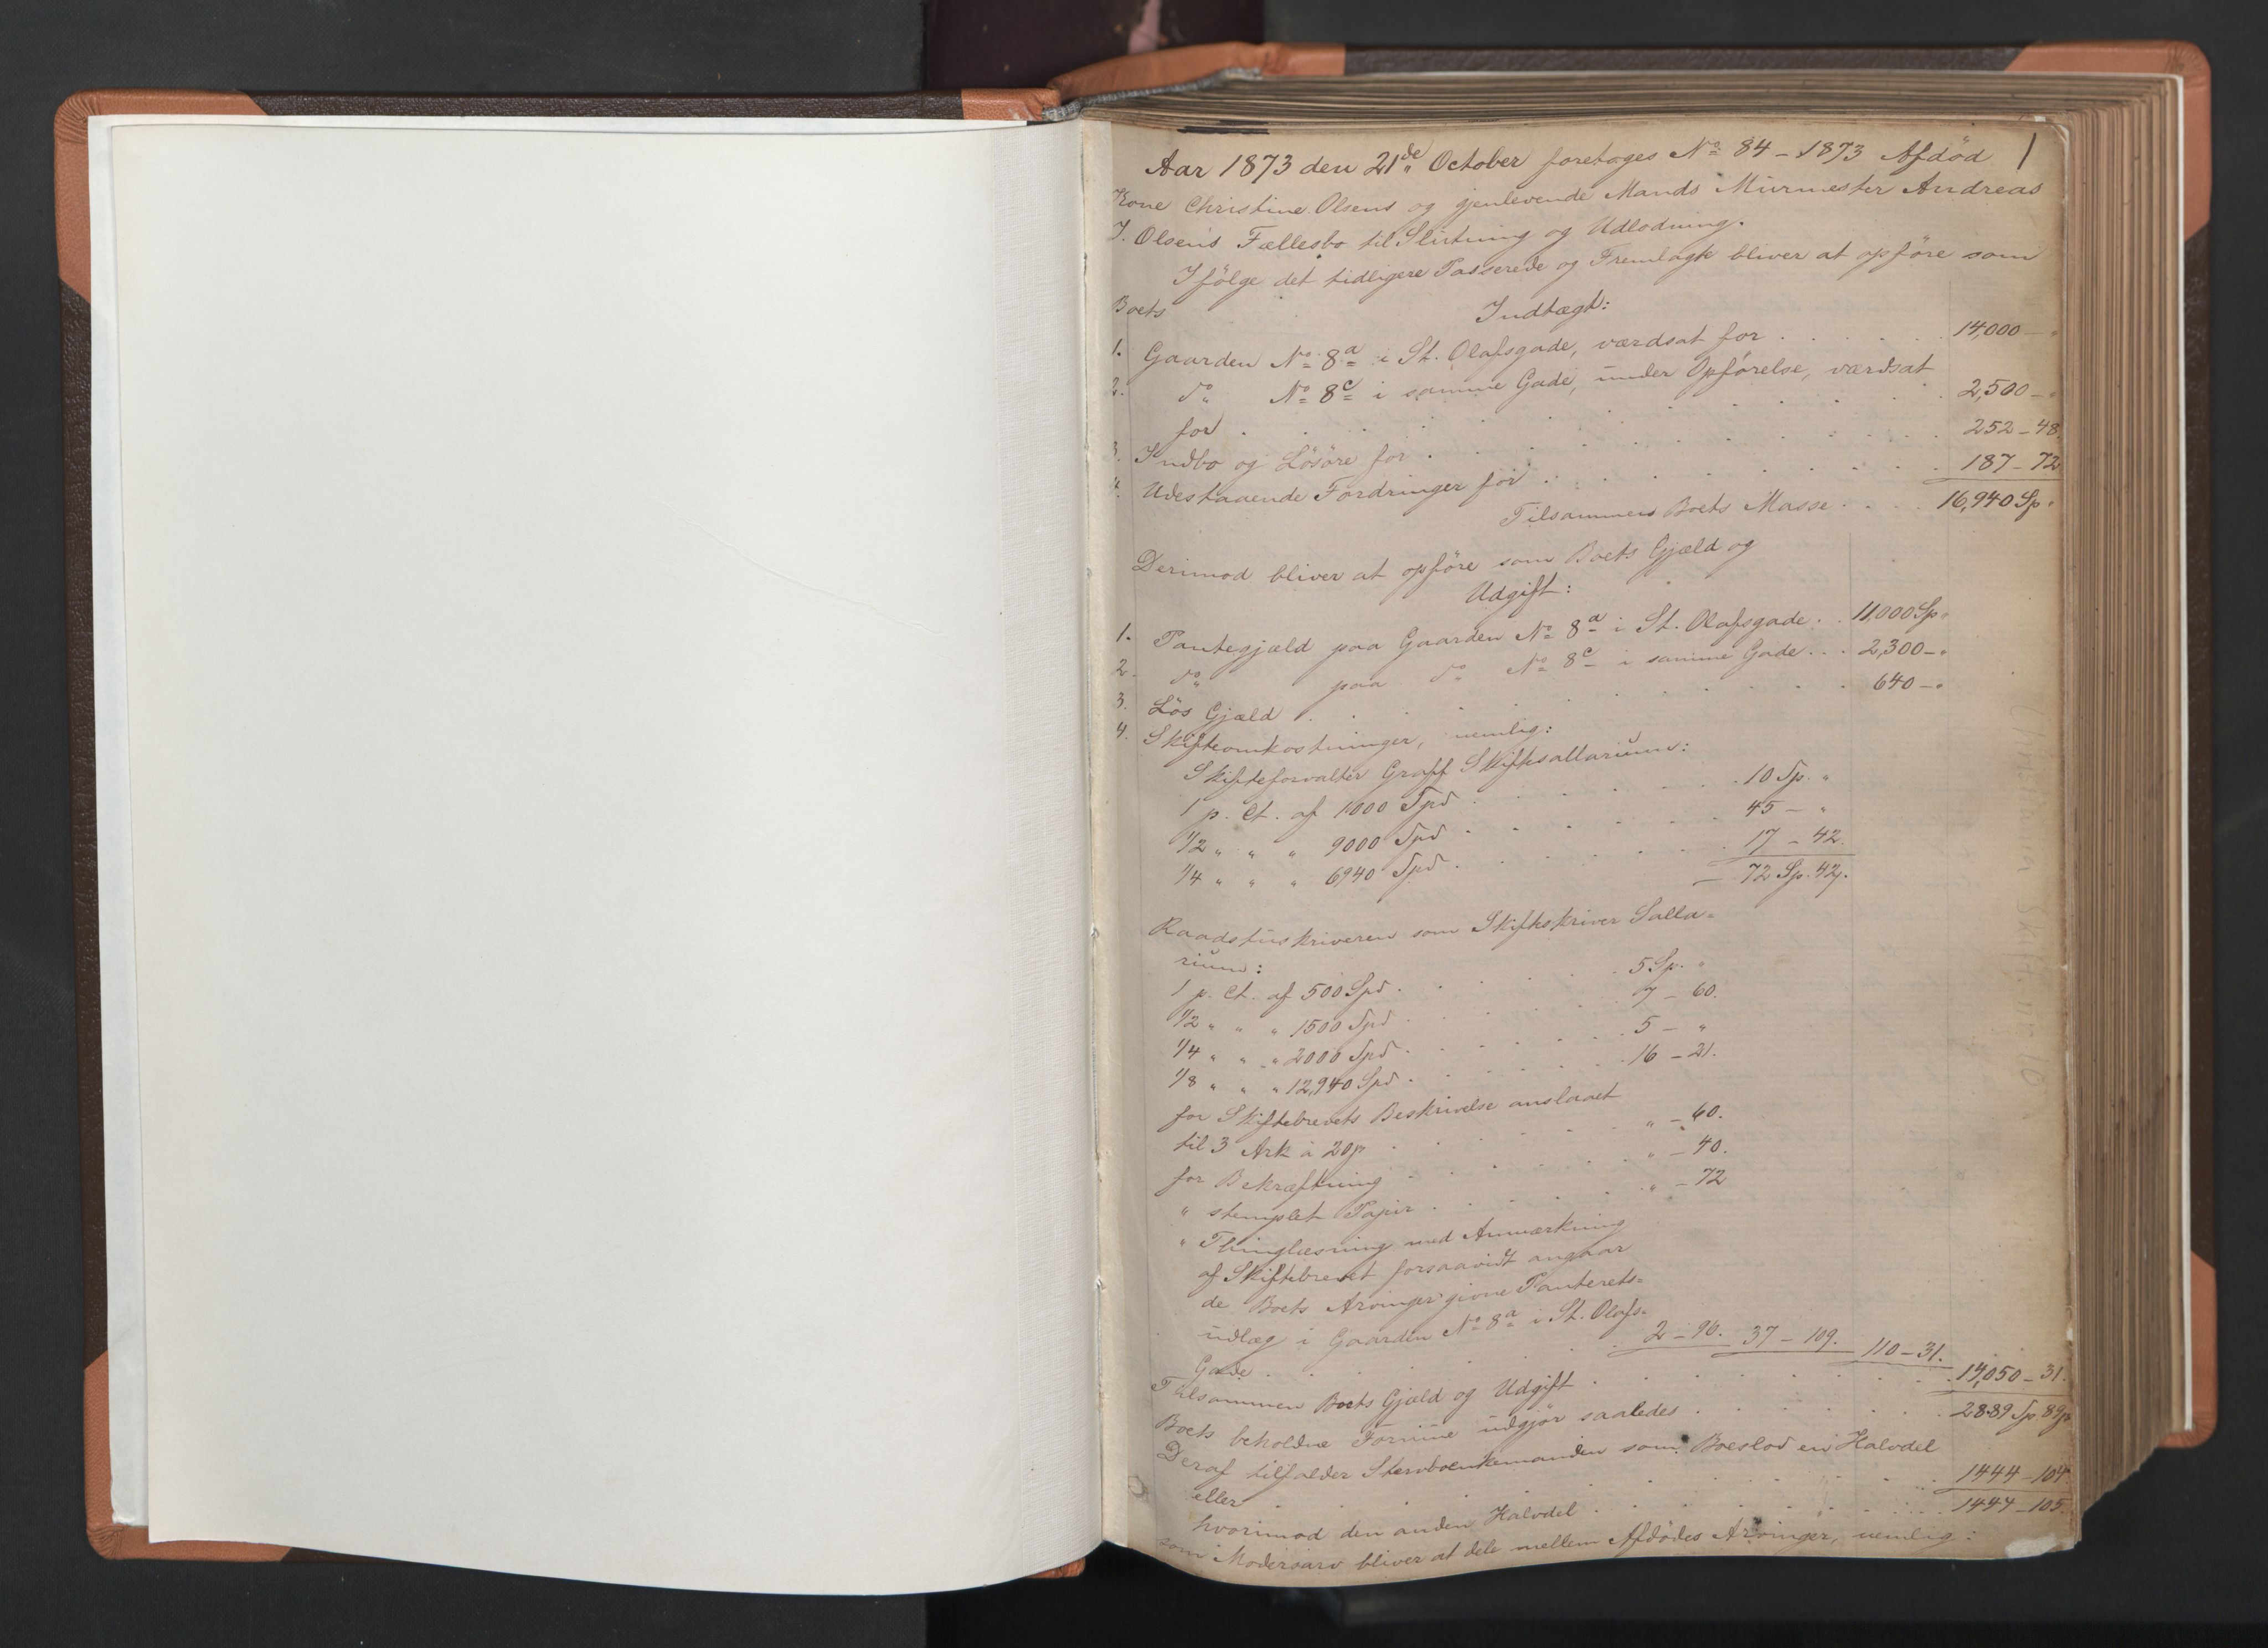 1
Aar 1873 den 21de October foretages No 84 - 1873 Afdød
Kone Christine Olsens og gjenlevende Mands Murmester Andreas
J. Olsens Fællesbo til Slutning og Udlodning.
Ifölge det tidligere Passerede og Fremlagte bliver at opføre som
Boets
Indtægt:
1. Gaarden No 8a i St. Olafsgade, værdsat for . . . . . 14,000 - "
2. do No 8c i samme Gade, under Opførelse, værdsat
for . . . . . 2,500 - "
3. Indbo og Lösöre for . . . . . 252 - 48.
4. Udestaaende Fordringer for . . . . . 187 - 72
Tilsammen Boets Masse . . . . 16,940 Sp. "
Derimod bliver at opføre som Boets Gjæld og
Udgift:
1. Pantegjæld paa Gaarden No 8a i St. Olafsgade . . 11,000 Sp. "
2. do paa do No 8c i samme Gade . . . 2,300 - "
3. Lös Gjæld . . . . . 640 - "
4. Skifteomkostninger, nemlig:
Skifteforvalter Graff Skiftesallarium:
1 p. Ct. af 1000 Spd . . . . . 10 Sp. "
1/2 " " " 9000 Spd . . . . . 45 - "
1/4 " " " 6940 Spd . . . . . 17 - 42.
72 Sp. 42.
Raadstuskriveren som Skifteskriver Salla-
rium:
1 p. Ct. af 500 Spd . . . . . 5 Sp. "
1/2 " " " 1500 Spd . . . . . 7 - 60.
1/4 " " " 2000 Spd . . . . . 5 - "
1/8 " " " 12,940 Spd . . . . . 16 - 21.
for Skiftebrevets Beskrivelse anslaaet
til 3 Ark à 20 p . . . . . " - 60.
for Bekræftning . . . . . " - 40.
" stemplet Papir . . . . . " - 72
" Thinglæsning med Anmærkning
af Skiftebrevet forsaavidt angaar
de Boets Arvinger givne Panterets-
udlæg i Gaarden No 8a i St. Olafs-
Gade . . . . . 2 - 96. 37 - 109. 110 - 31.
Tilsammen Boets Gjæld og Udgift . . . . . 14,050 - 31.
Boets beholdne Formue udgjør saaledes . . . . . 2889 Sp. 89 p
Deraf tilfalder Stervboenkemanden som Boeslod en Halvdel
eller . . . . . 1444 - 104.
hvorimod den anden Halvdel . . . . . 1444 - 105.
som Mødrearv bliver at dele mellem Afdødes Arvinger, nemlig: